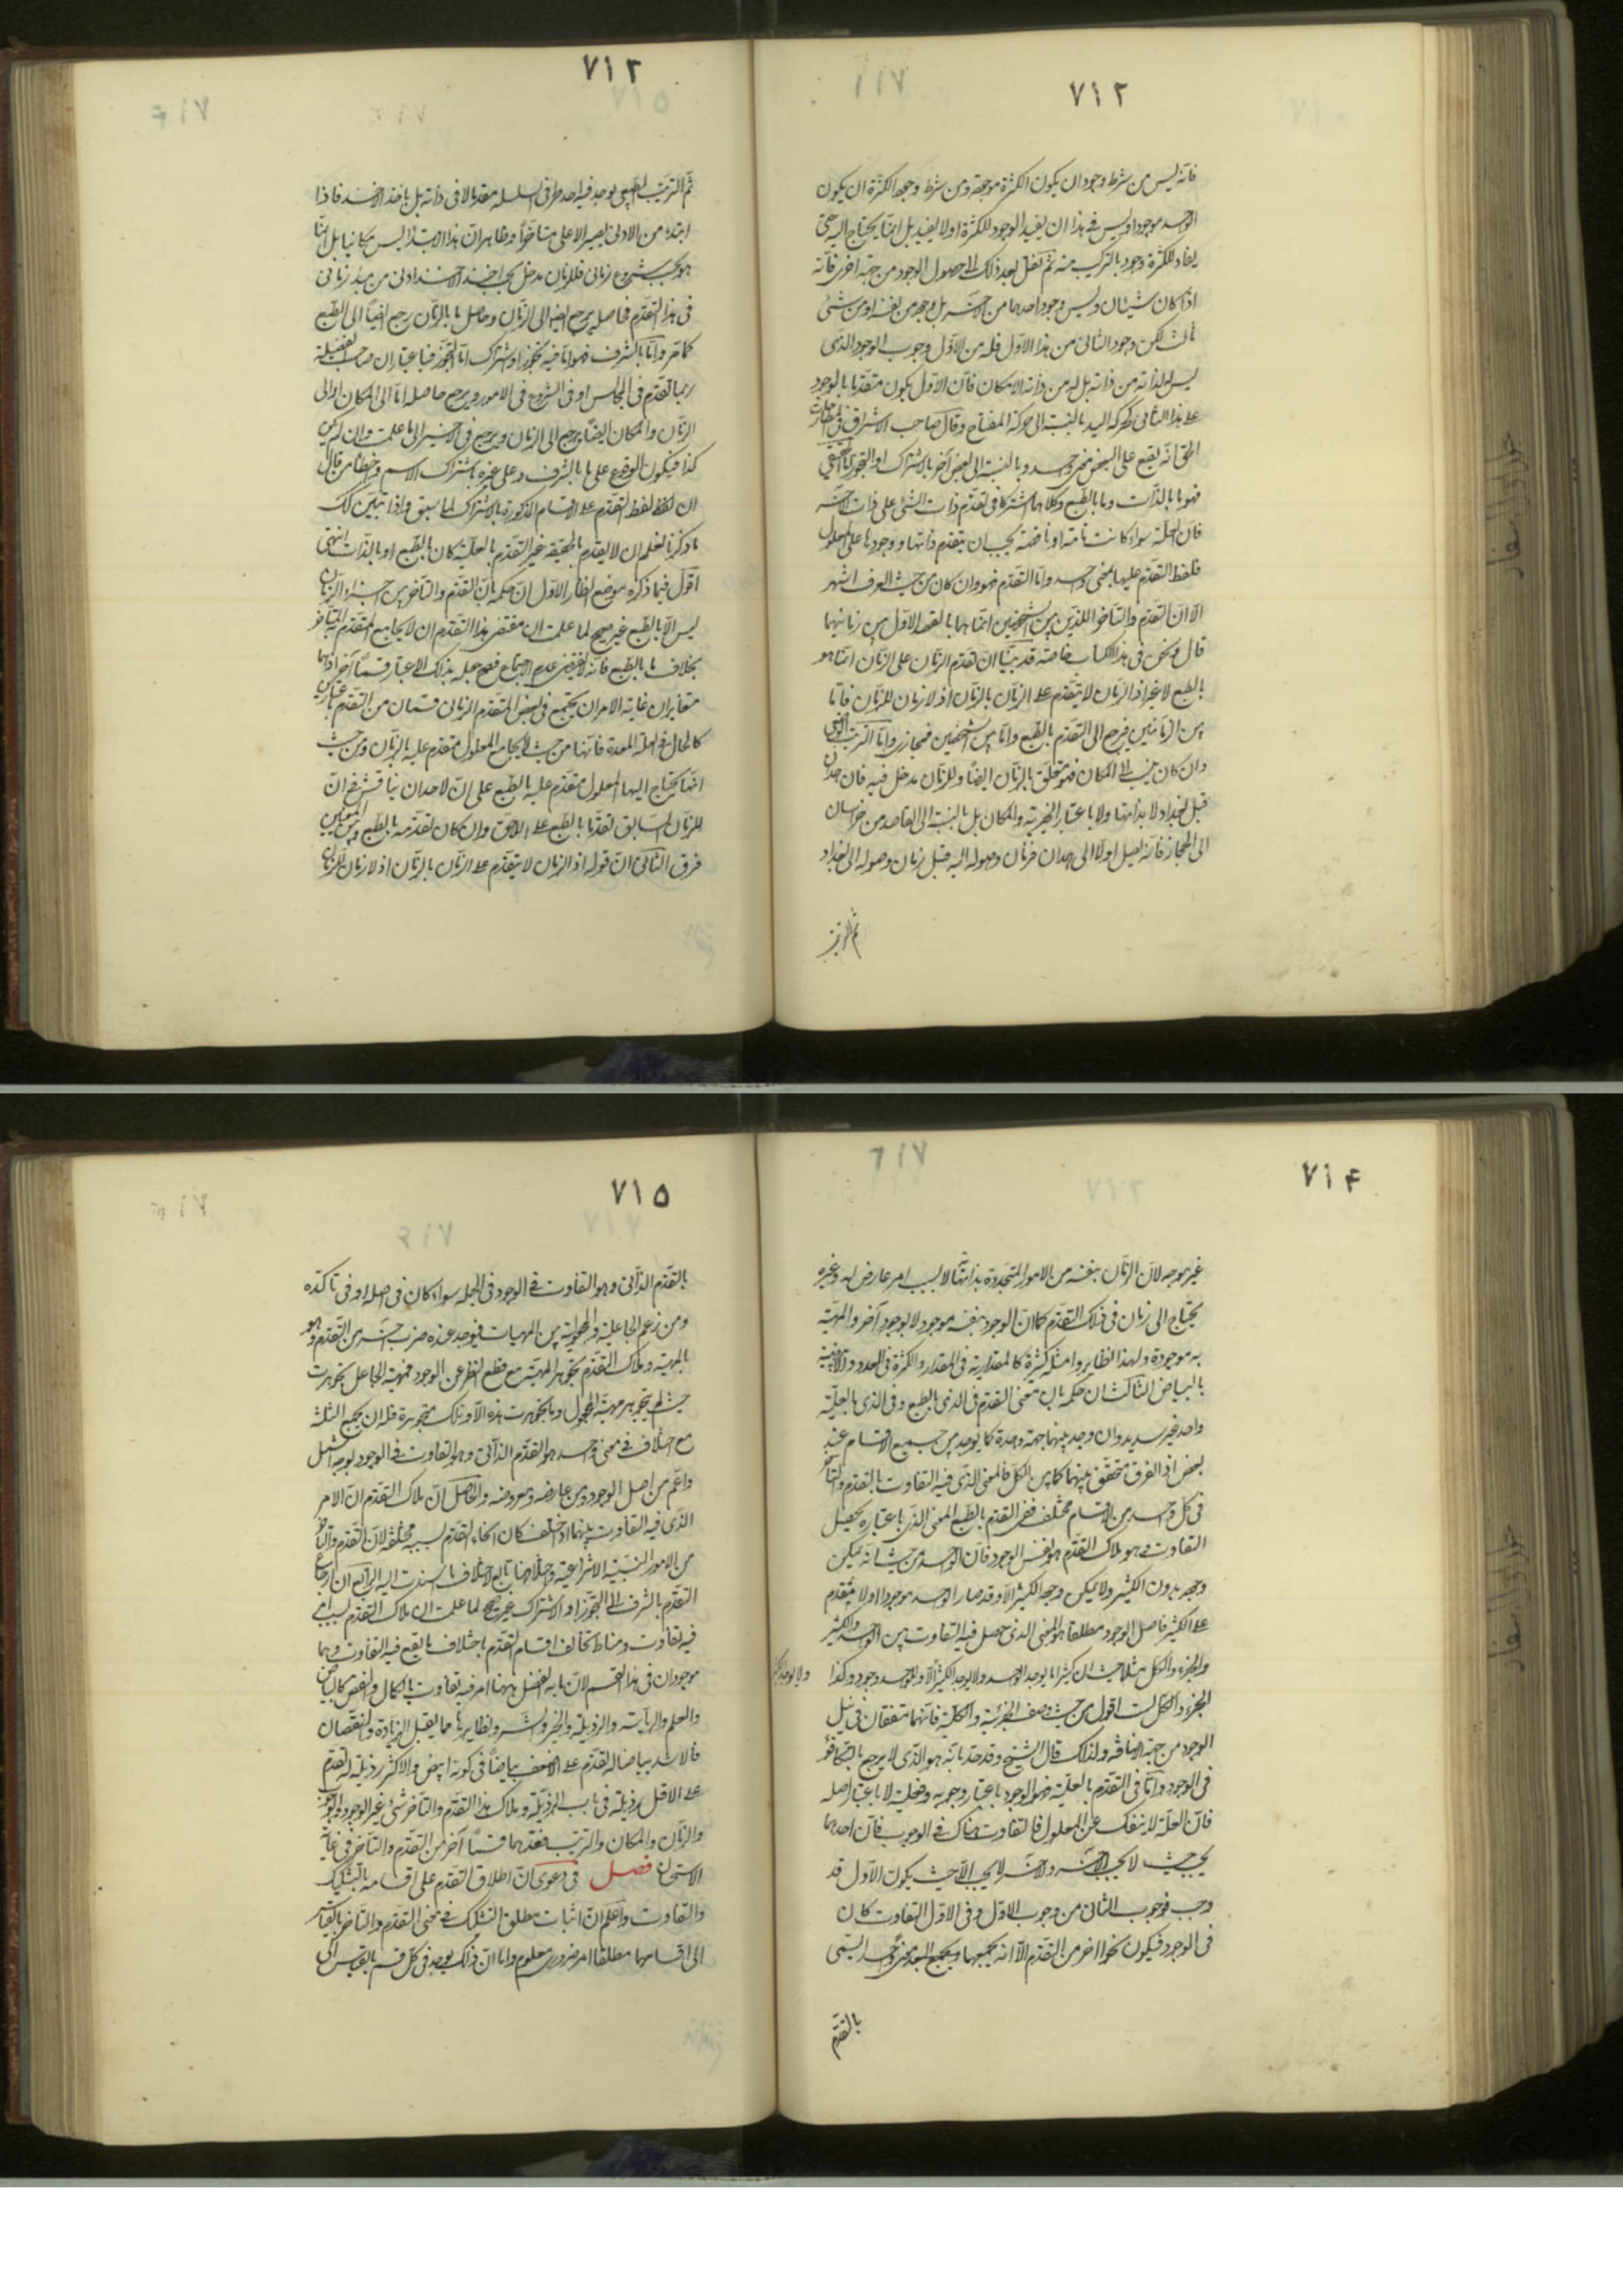 ٧١٢
فانه ليس من شرط وجوده ان يكون الكثرة موجودة ومن شرط وجود الكثرة ان يكون
الواحد موجودا وليس في هذا ان يفيد الوجود للكثرة او لا يفيد بل انما يحتاج اليه حتى
يفاد للكثرة وجود بالتركيب منه ثم نقل بعد ذلك الى حصول الوجود من جهة اخرى فانه
اذا كان شيئان وليس وجود احدهما من الآخر بل وجوده من نفسه او من شئ
ثالث لكن وجود الثاني من هذا الاول فله من الاول وجوب الوجود الذي
ليس له لذاته من ذاته بل له من ذاته الامكان فان الاول يكون متقدما بالوجود
على هذا الثاني كحركة اليد بالنسبة الى حركة المفتاح وقال صاحب الاشراق في المطارحات
الحق انه يقع على البعض بمعنى واحد وبالنسبة الى بعض آخر بالاشتراك او التجوز اما الحقيقي
فهو ما بالذات وما بالطبع وكلاهما اشتركا في تقدم ذات الشئ على ذات الآخر
فان العلة سواء كانت تامة او ناقصة يجب ان يتقدم ذاتها ووجودها على المعلول
فلفظ التقدم عليها بمعنى واحد واما التقدم فهو وان كان من حيث العرف اشهر
الا ان التقدم والتاخر اللذين بين الشخصين انما هما بالقصد الاول بين زمانيهما
قال ونحن في هذا الكتاب خاصة قد بينا ان تقدم الزمان على الزمان انما هو
بالطبع لا غير اذ الزمان لا يتقدم على الزمان بالزمان اذ لا زمان للزمان فاما
بين الزمانين فيرجع الى التقدم بالطبع واما بين الشخصين فمجازي واما الترتيب الوضعي
وان كان ينسب الى المكان فهو متعلق بالزمان ايضا وللزمان مدخل فيه فان همدان
قبل بغداد لا بذاتها ولا باعتبار الحيز والمكان بل بالنسبة الى القاصد من خراسان
الى الحجاز فانه يصل اولا الى همدان فزمان وصوله اليه قبل زمان وصوله الى بغداد
ثم الترتيب
٧١٣
ثم الترتيب الطبيعي يوجد فيه احد طرفي السلسلة مقدما لا في ذاته بل باخذ الآخذ فاذا
ابتدء من الادنى يصير الاعلى متاخرا وظاهر ان هذا الابتداء ليس مكانيا بل انما
هو بحسب شروع زماني فللزمان مدخل بحسب اخذ الآخذ ادنى من مبدء زماني
في هذا التقدم فحاصله يرجع ايضا الى الزمان وحاصل ما بالزمان رجع ايضا الى الطبع
كما مر واما بالشرف فهو اما فيه تجوز او اشتراك اما التجوز فباعتبار ان صاحب الفضيلة
ربما تقدم في المجالس او في الشروع في الامور ويرجع حاصله اما الى المكان او الى
الزمان والمكان ايضا يرجع الى الزمان ويرجع في الآخر الى ما علمت وان لم يكن
كذا فيكون الوقوع على ما بالشرف وعلى غيره باشتراك الاسم وخطأ من قال
ان لفظ لفظ التقدم على الاقسام المذكورة بالاشتراك لما سبق واذا تبين لك
ما ذكرنا تعلم ان لا يقدم بالحقيقة غير التقدم بالعلية كان بالطبع او بالذات انتهى
اقول فيما ذكره موضع انظار الاول ان حكمه بان التقدم والتاخر بين اجزاء الزمان
ليس الا بالطبع غير صحيح لما علمت ان مقتضى هذا التقدم ان لا يجامع المتقدم به المتاخر
بخلاف ما بالطبع فانه لا يقتضي عدم الاجتماع فصح جعله بذلك الاعتبار قسما آخر اذ هما
متغايران غاية الامر ان يجتمع في بعض المتقدم الزماني قسمان من التقدم باعتبارين
كالحال في العلة المعدة فانها من حيث لا يجامع المعلول متقدم عليه بالزمان ومن حيث
انها يحتاج اليها المعلول متقدم عليه بالطبع على ان لاحد ان يناقش في ان
للزمان السابق تقدما بالطبع على اللاحق وان كان تقدمه بالطبع وبين المعنيين
فرق الثاني ان قوله اذ الزمان لا يتقدم على الزمان بالزمان اذ لا زمان للزمان
٧١۴
غير موجه لان الزمان بنفسه من الامور المتجددة بذاتها لا بسبب امر عارض له وغيره
يحتاج الى زمان في ذلك التقدم كما ان الوجود بنفسه موجود لا بوجود آخر والمهية
به موجودة ولهذا نظاير وامثلة كثيرة كالمقدارية في المقدار والكثرة في العدد والابيضية
بالبياض الثالث ان حكمه بان معنى التقدم في الذي بالطبع وفي الذي بالعلية
واحد غير سديد وان وجد بينهما جهة وحدة كما يوجد بين جميع الاقسام عند
بعض اذ الفرق متحقق بينهما كما بين الكل فالمعنى الذي فيه التفاوت بالتقدم والتاخر
في كل واحد من الاقسام مختلف ففي التقدم بالطبع المعنى الذي باعتباره يحصل
التفاوت وهو ملاك التقدم هو نفس الوجود فان الواحد من حيث انه يمكن
وجوده بدون الكثير ولا يمكن وجود الكثير الا وقد صار الواحد موجودا اولا متقدم
على الكثير فاصل الوجود مطلقا هو المعنى الذي حصل فيه التفاوت بين الواحد والكثير
والجزء والكل مثلا حيث ان كثيرا ما يوجد الواحد ولا يوجد الكثير الا وللواحد وجود وكذا
الجزء والكل لست اقول من حيث وصف الجزئية والكلية فانهما متفقان في نيل
الوجود من جهة الاضافة ولذلك قال الشيخ وقد حد بانه هو الذي لا يرجع بالتكافؤ
في الوجود واما في التقدم بالعلية فهو الوجود باعتبار وجوبه وفعليته لا باعتبار اصله
فان العلة لا ينفك عن المعلول فالتفاوت هناك في الوجوب فان احدهما
يجب حيث لا يجب الآخر والآخر لا يجب الا حيث يكون الاول قد
وجب فوجوب الثاني من وجوب الاول وفي الاول التفاوت كان
في الوجود فيكون نحوا اخر من التقدم الا انه يجمعهما ويجمع البعد معنى واحد يسمى
بالتقدم
٧١۵
بالتقدم الذاتي وهو التفاوت في الوجود في الجملة سواء كان في اصله او في تاكده
ومن زعم الجاعلية والمجعولية بين المهيات فيوجد عنده ضرب آخر من التقدم وهو
بالمهية وملاك التقدم تجوهر المهية مع قطع النظر عن الوجود فمهية الجاعل تجوهرت
حيث لم يتجوهر مهية المجعول وما تجوهرت هذه الا وتلك متجوهرة فله ان يجمع الثلثة
مع اختلاف في معنى واحد هو التقدم الذاتي وهو التفاوت في الوجود بوجه اشمل
واعم من اصل الوجود ومن عارضه ومعروضه والحاصل ان ملاك التقدم ان الامر
الذي فيه التفاوت بينهما اذا اختلف كان انحاء التقدم بسببه مختلفة لان التقدم والتاخر
من الامور النسبية الانتزاعية واختلافها تابع لاختلاف ما اسندت اليه الرابع ان ارجاع
التقدم بالشرف الى التجوز او الاشتراك غير صحيح لما علمت ان ملاك التقدم بسبب امر
فيه تفاوت ومناط تخالف اقسام التقدم باختلاف ما يقع فيه التفاوت وهما
موجودان في هذا القسم لان ما به الفضل هيهنا امر فيه تفاوت بالكمال والنقص كالبياض
والعلم والرياسة والرذيلة والخير والشر ونظايرها مما يقبل الزيادة والنقصان
فالاشد بياضا له تقدم على الاضعف بياضا في كونه ابيض والاكثر رذيلة له تقدم
على الاقل رذيلة في باب الرذيلة وملاك هذا التقدم والتاخر شئ غير الوجود والوجوب
والزمان والمكان والترتيب فعدهما قسما آخر من التقدم والتاخر في غاية
الاستحسان فصل في دعوى ان اطلاق التقدم على اقسامه بالتشكيك
والتفاوت واعلم ان اثبات مطلق التشكيك في معنى التقدم والتاخر بالقياس
الى اقسامهما مطلقا امر ضروري معلوم واما ان ذلك يوجد في كل قسم بالقياس الى